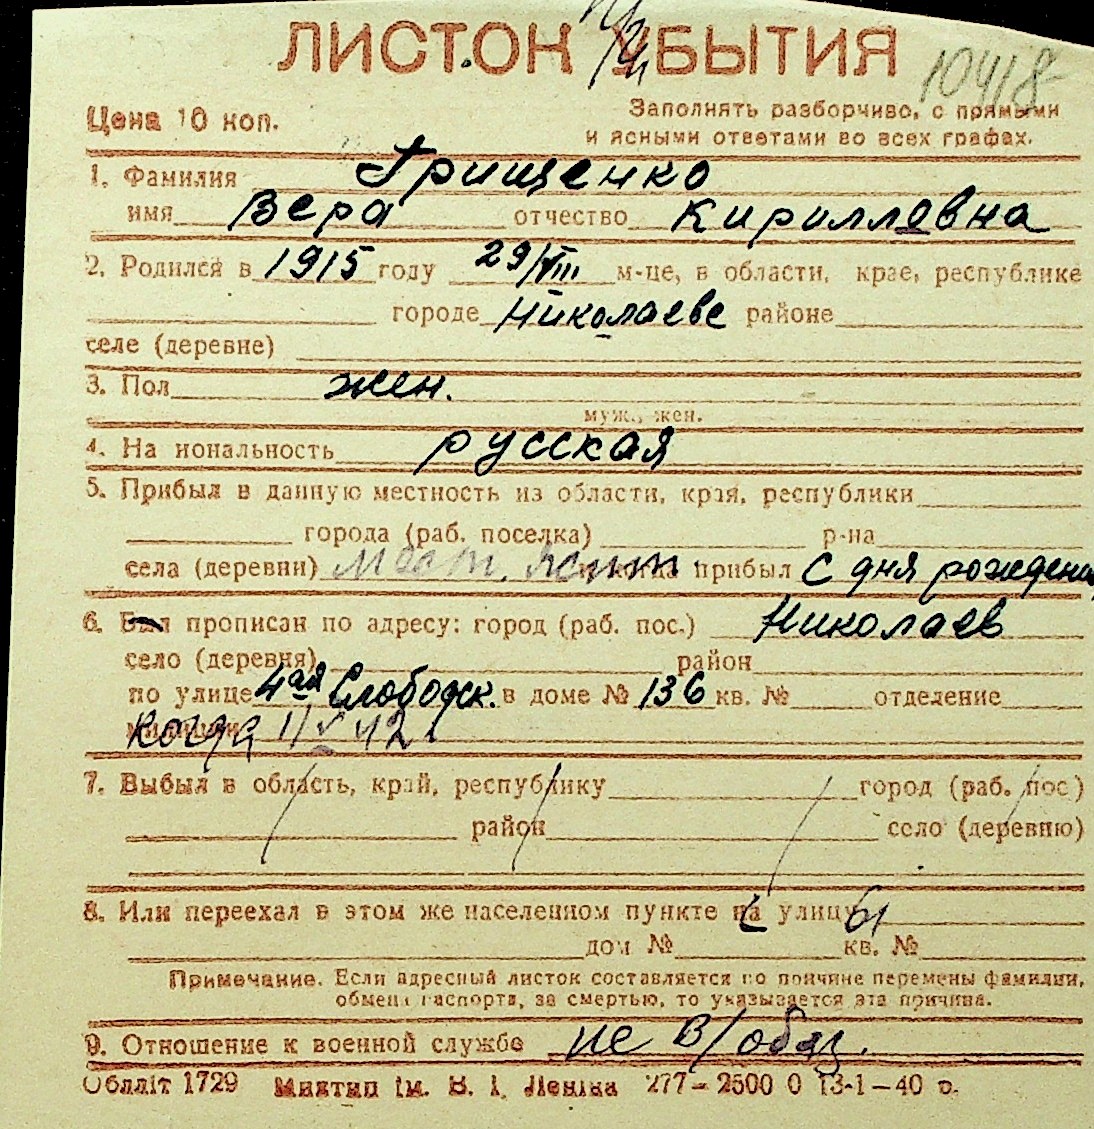 ЛИСТОК УБЫТИЯ
10418
Цена 10 коп.
Заполнять разборчиво, с прямыми
и ясными ответами во всех графах.
1. Фамилия Грищенко
имя Вера отчество Кирилловна
2. Родился в 1915 году 29/VIII м-це, в области, крае, республике
городе Николаеве районе
селе (деревне)
3. Пол жен.
муж., жен.
4. На иональность русская
5. Прибыл в данную местность из области, края, республики
города (раб. поселка) р-на
села (деревни) мест. прибыл с дня рождения
6. Был прописан по адресу: город (раб. пос.) Николаев
село (деревня) район
по улице 4ая Слободск. в доме № 136 кв. № отделение
когда 1/V 42
7. Выбыл в область, край, республику город (раб. пос.)
район село (деревню)
8. Или переехал в этом же населенном пункте на улицу
дом № кв. №
Примечание. Если адресный листок составляется по причине перемены фамилии,
обмена паспорта, за смертью, то указывается эта причина.
9. Отношение к военной службе не в/обяз.
Обліт 1729 Миктип ім. В. І. Леніна 277–2500 0 13-1–40 р.